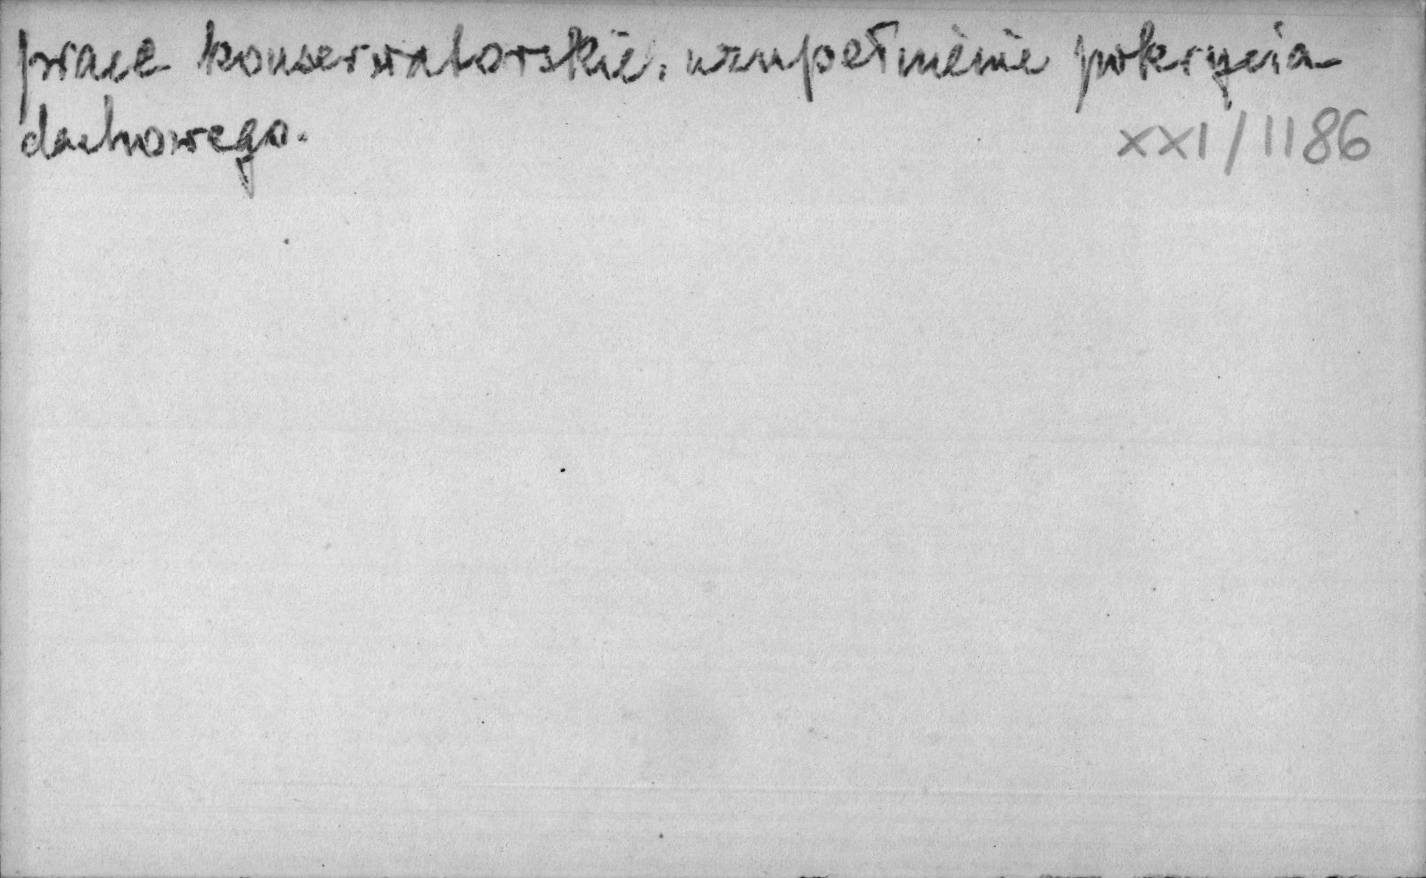 prace konserwatorskie, uzupełnienie pokrycia
dachowego.
XXI/1186